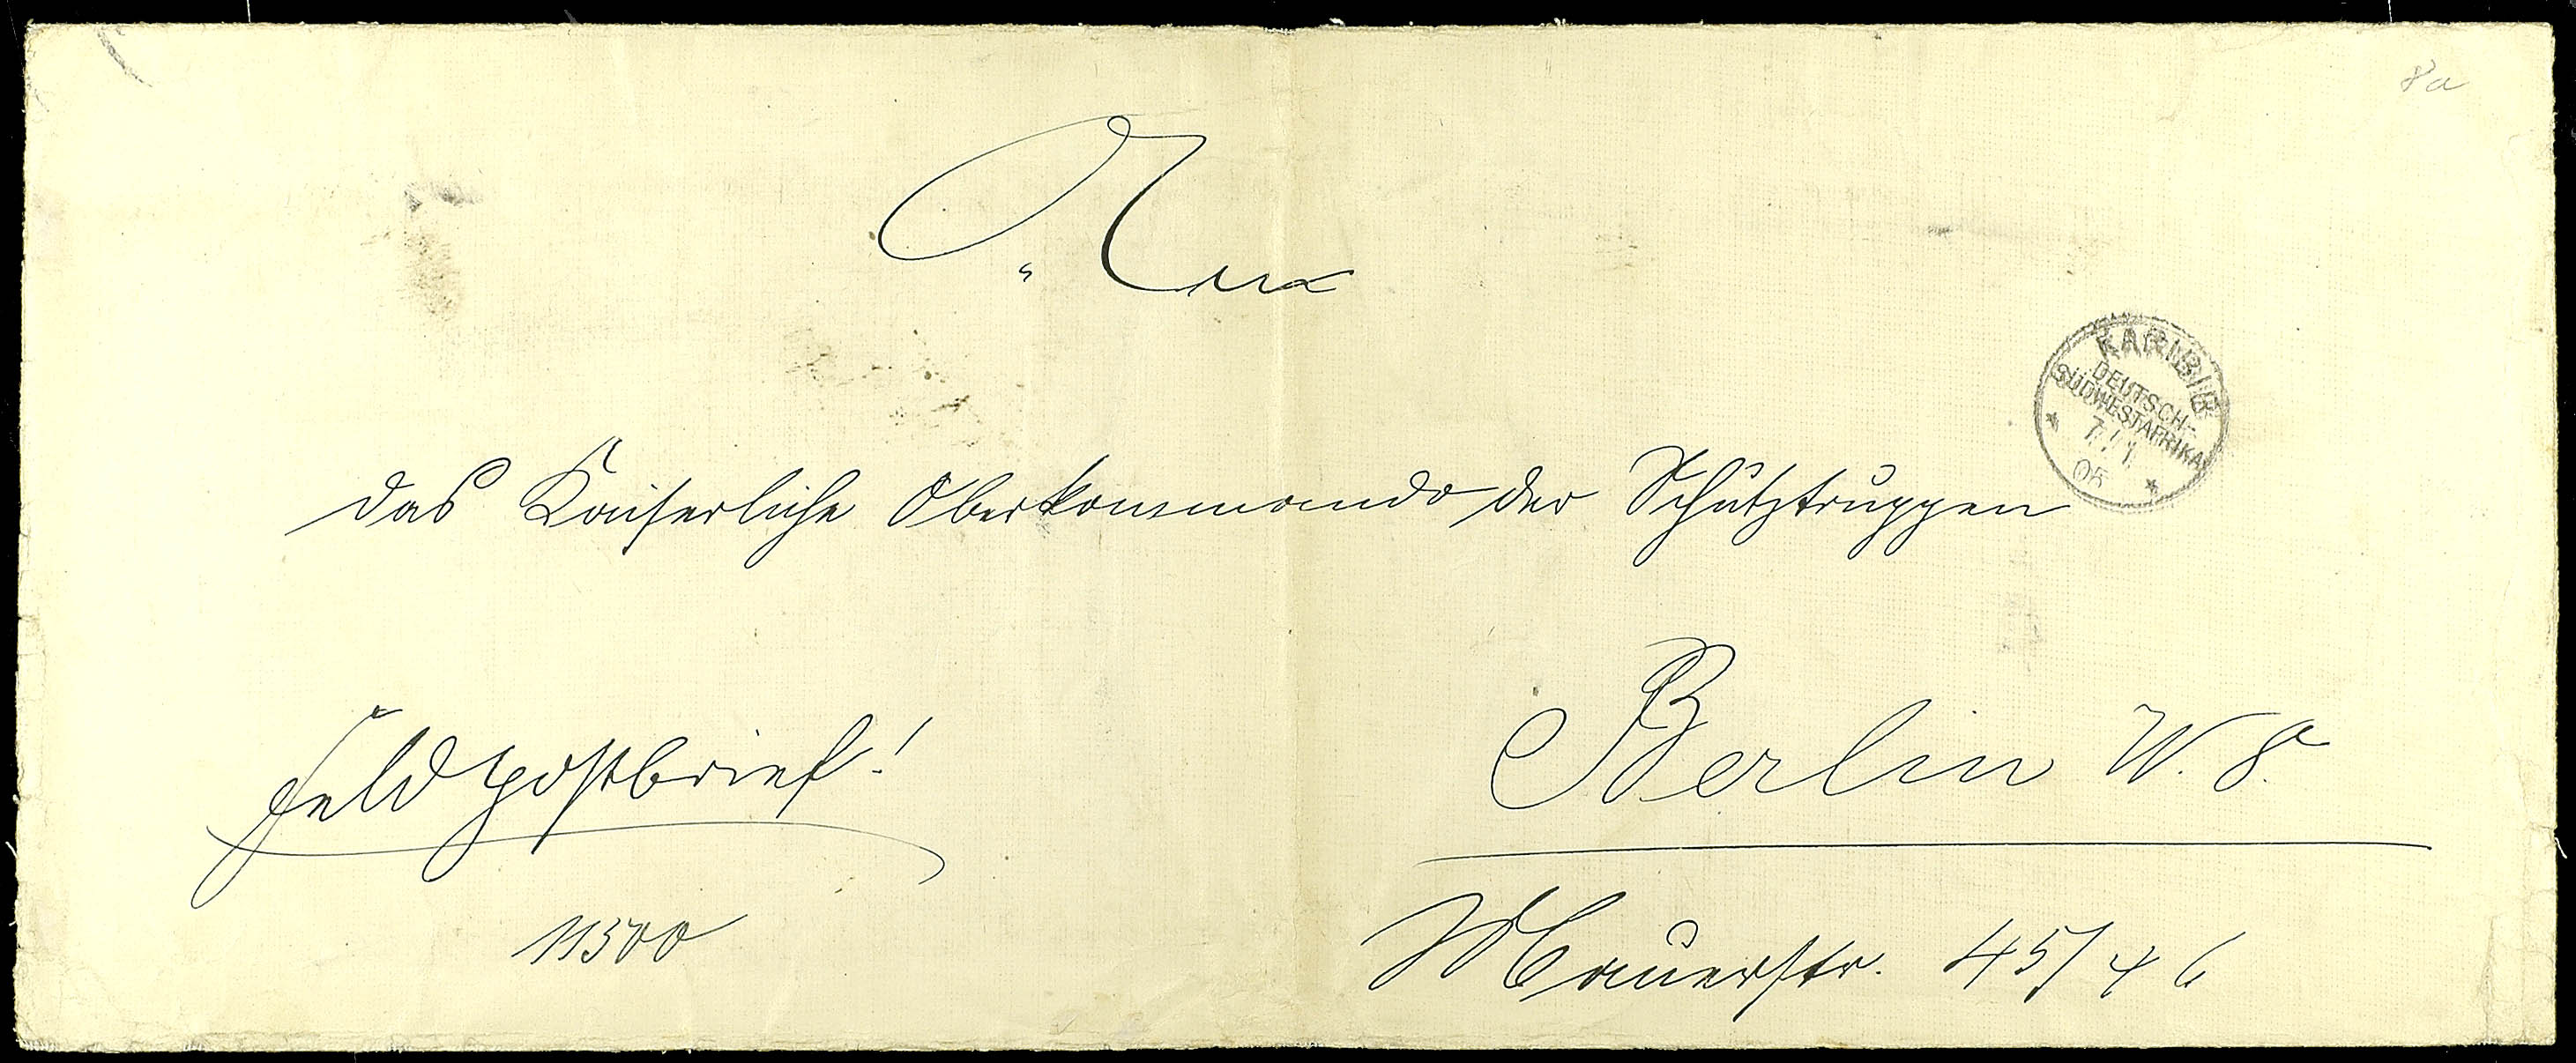 8a
An
KARIBIB
DEUTSCH-
SÜDWESTAFRIKA
7/1.
05
das Kaiserliche Oberkommando der Schutztruppen
Berlin W. 8.
Feldpostbrief!
11500
Mauerstr. 45/46